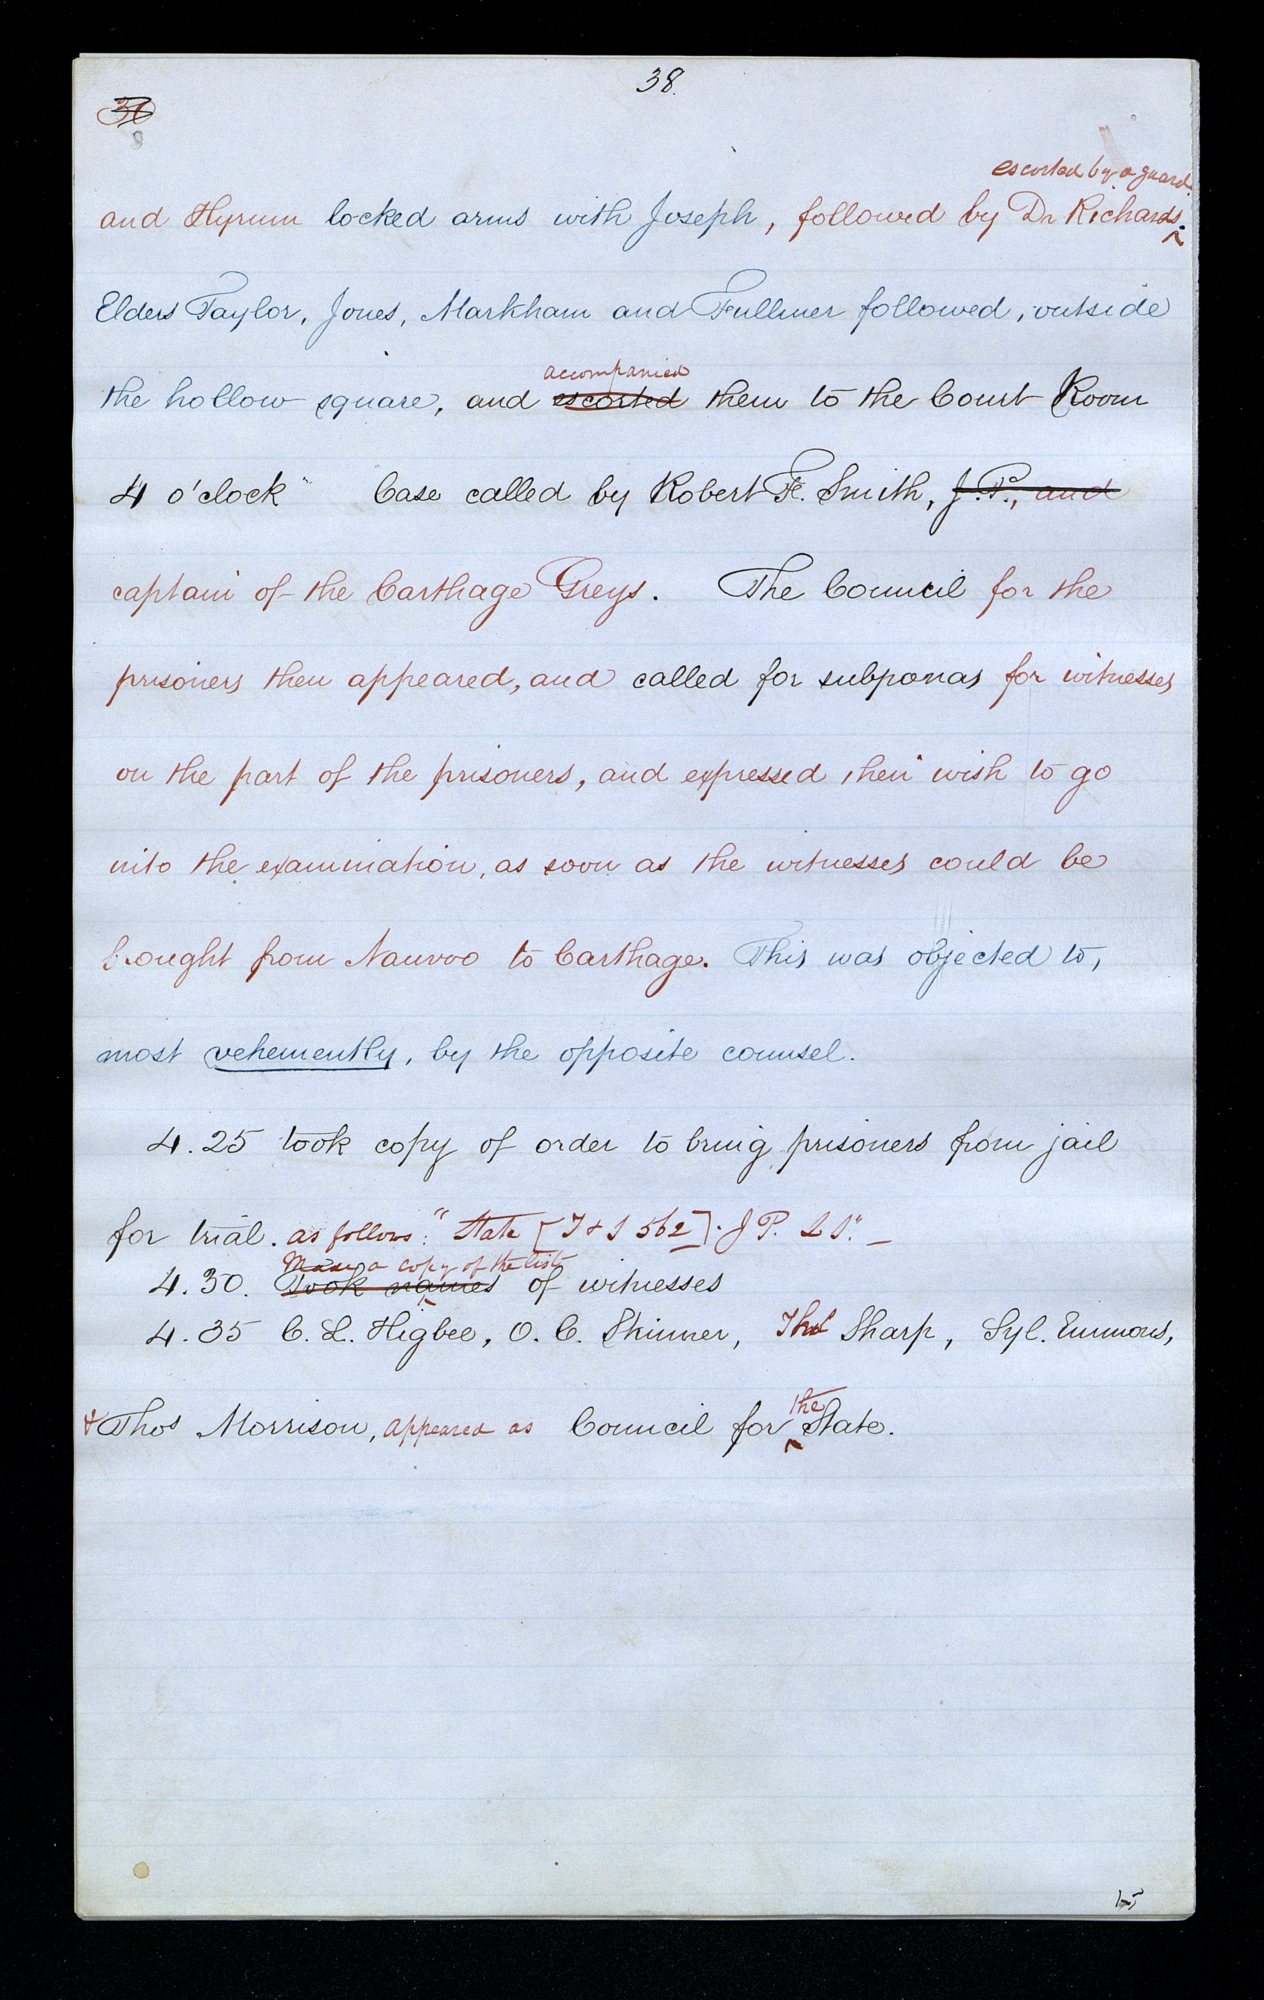 38.
escorted by a guard.
and Hyrum locked arms with Joseph, followed by Dr Richards.
Elders Taylor, Jones, Markham and Fullmer followed, outside
accompanied
the hollow square, and escorted them to the Court Room
4 o'clock Case called by Robert F. Smith, J. P., and
captain of the Carthage Greys. The Council for the
prisoners then appeared, and called for subpœnas for witnesses
on the part of the prisoners, and expressed their wish to go
into the examination, as soon as the witnesses could be
brought from Nauvoo to Carthage. This was objected to,
most vehemently, by the opposite counsel.
4.25 took copy of order to bring prisoners from jail
for trial. as follows: "State [T & S 562]. J P. L S." —
Made a copy of the list
4.30. Took names of witnesses
4.35 C. L. Higbee, O. C. Skinner, Thos Sharp, Syl. Emmons,
the
& Thos Morrison, appeared as Council for State.